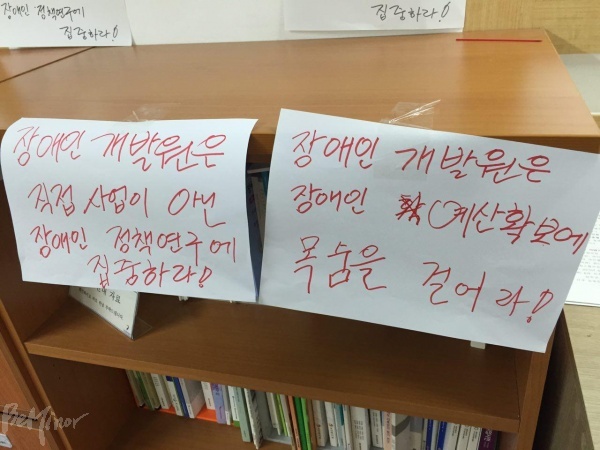 장애인 정책연구에
집중하라!
집중하라!
장애인 개발원은
직접사업이 아닌
장애인 정책연구에
집중하라!
장애인 개발원은
장애인 예산확보에
목숨을 걸어라!
BeMinor